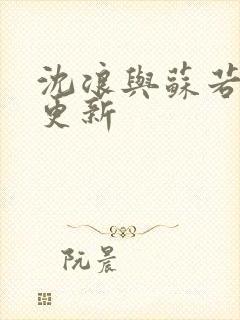 沈浪與蘇若
更新
阮晨